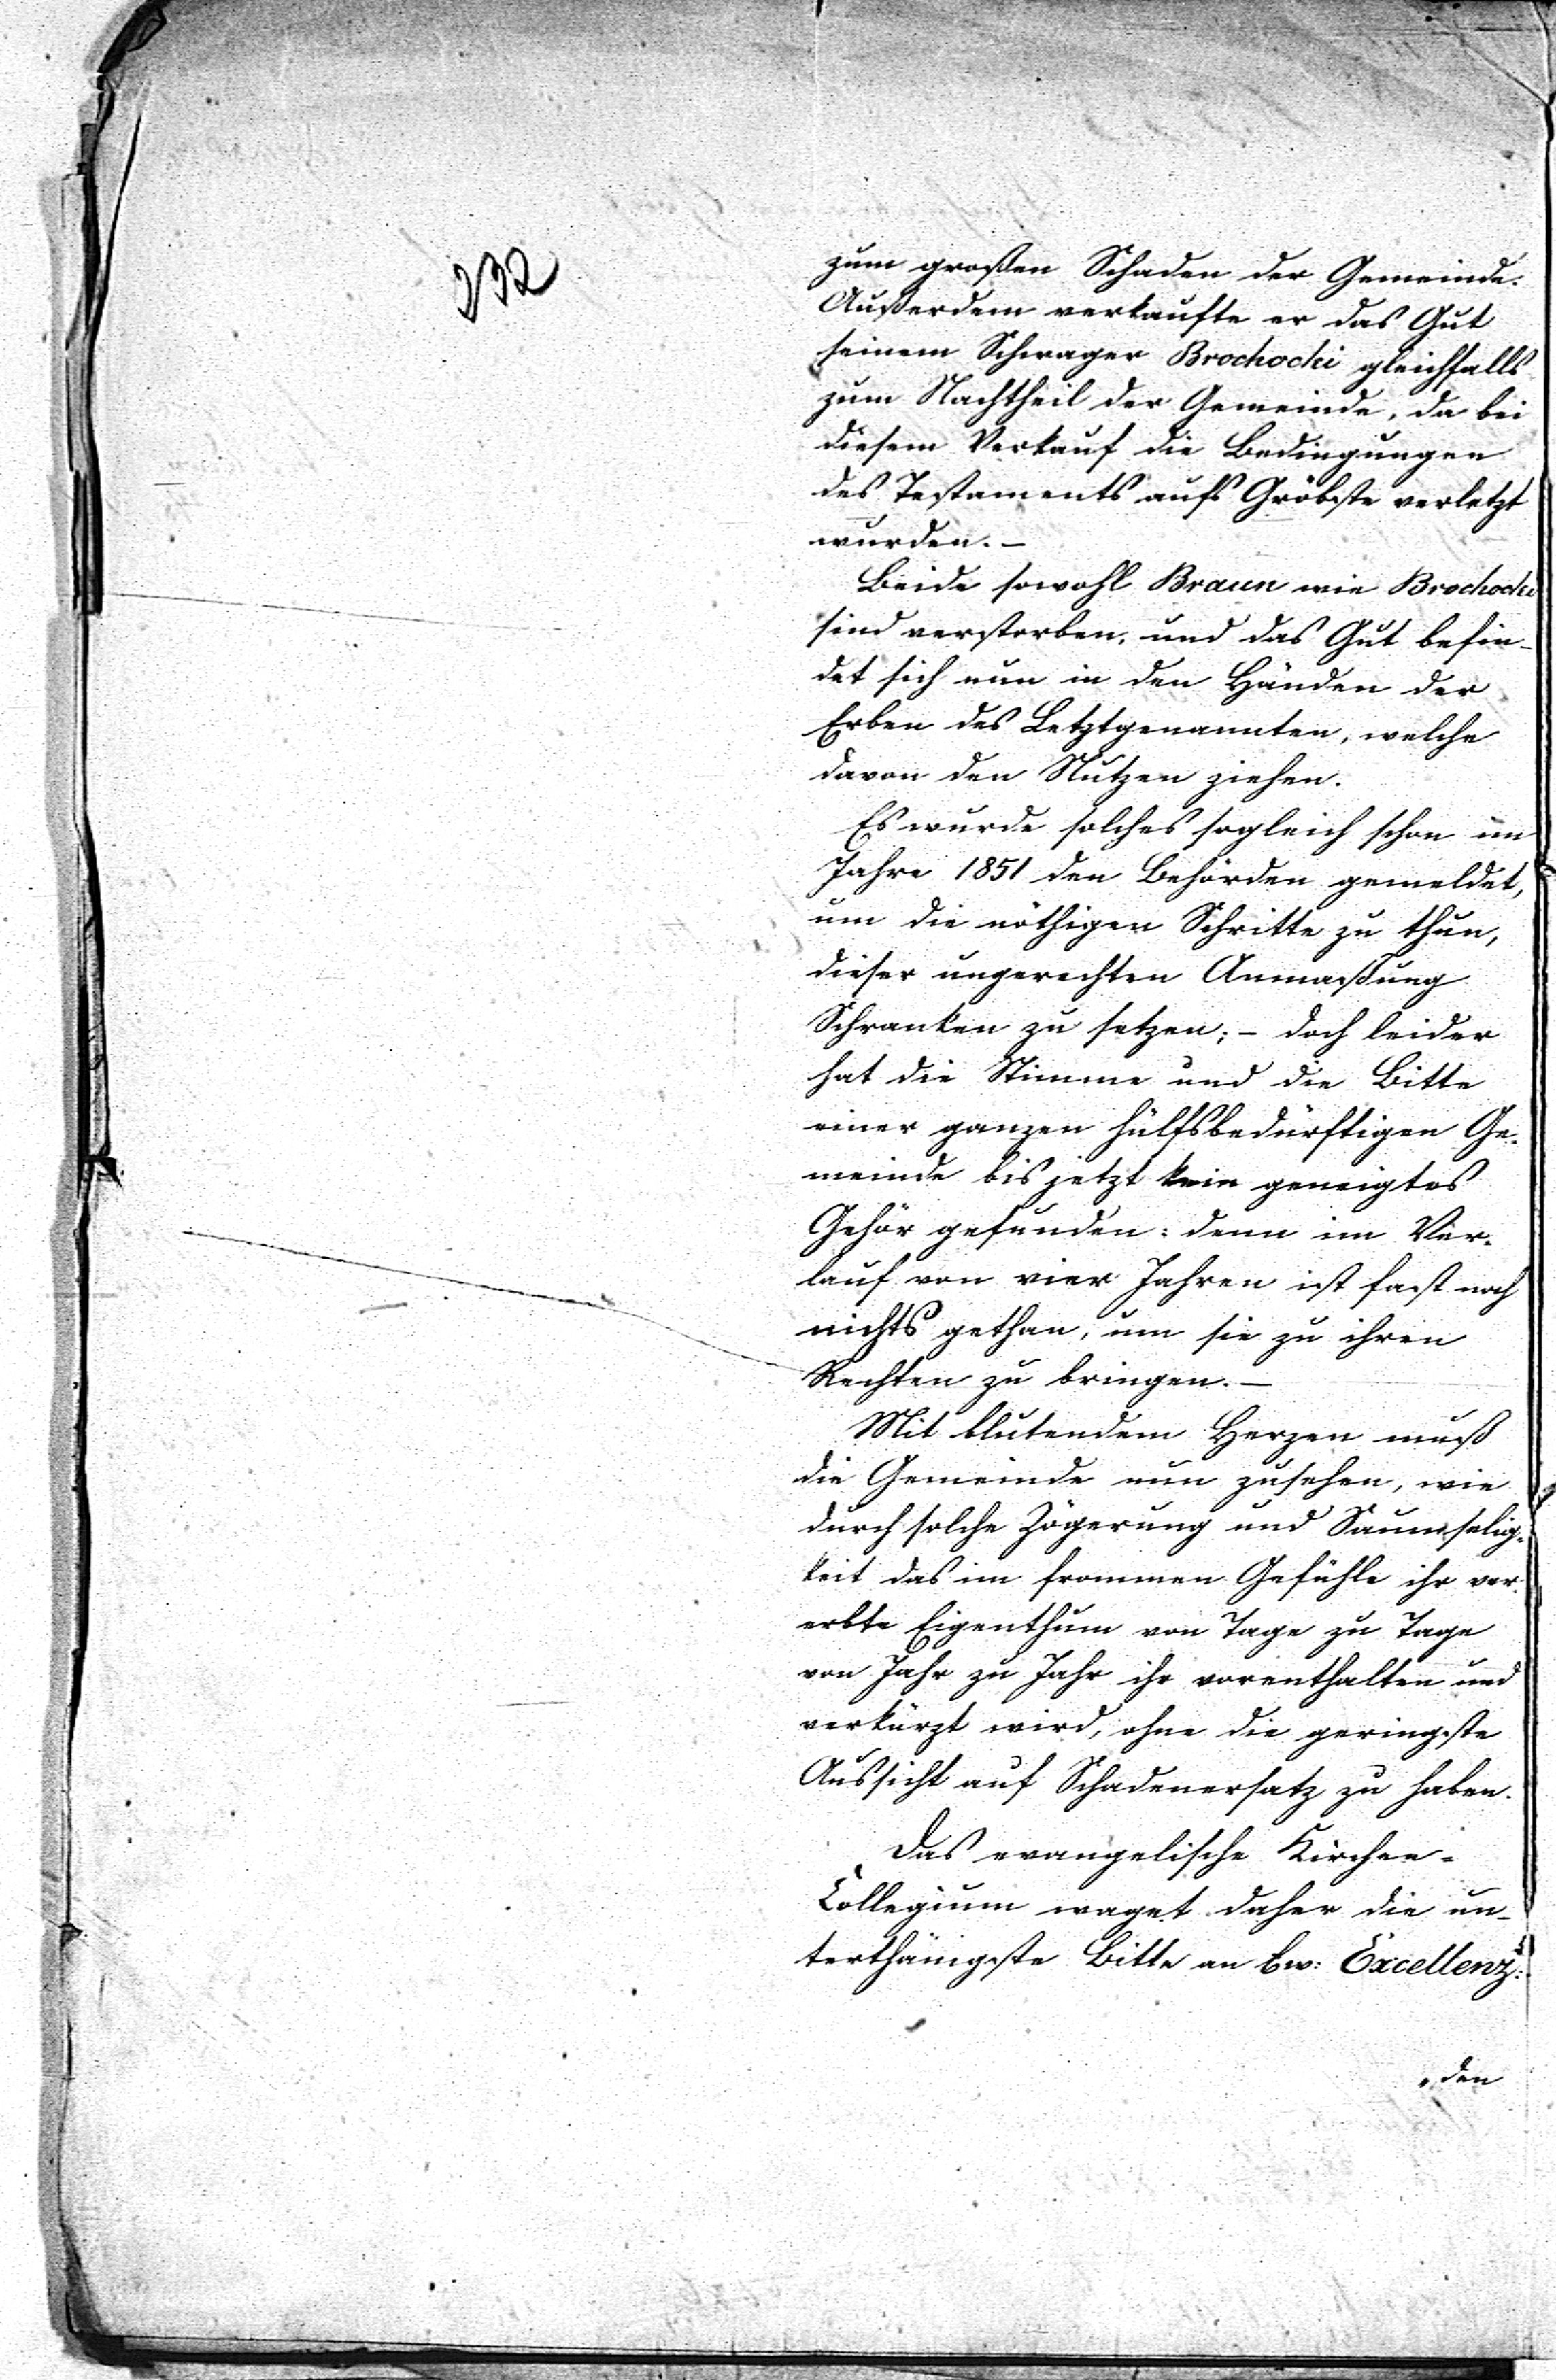 232
zum großen Schaden der Gemeinde.
Außerdem verkaufte er das Gut
seinem Schwager Brochocki gleichfalls
zum Nachtheil der Gemeinde, da bei
diesem Verkauf die Bedingungen
des Testaments aufs Gröbste verletzt
wurden. –
Beide sowohl Braun wie Brochocki
sind verstorben, und das Gut befin-
det sich nun in den Händen der
Erben des Letztgenannten, welche
davon den Nutzen ziehen.
Es wurde solches sogleich schon im
Jahre 1851 den Behörden gemeldet,
um die nöthigen Schritte zu thun,
dieser ungerechten Anmaßung
Schranken zu setzen; – doch leider
hat die Stimme und die Bitte
einer ganzen hülfsbedürftigen Ge-
meinde bis jetzt kein geneigtes
Gehör gefunden: denn im Ver-
lauf von vier Jahren ist fast noch
nichts gethan, um sie zu ihren
Rechten zu bringen. –
Mit blutendem Herzen muß
die Gemeinde nun zusehen, wie
durch solche Zögerung und Saumselig-
keit das im frommen Gefühle ihr ver-
erbte Eigenthum von Tage zu Tage
von Jahr zu Jahr ihr vorenthalten und
verkürzt wird, ohne die geringste
Aussicht auf Schadenersatz zu haben.
Das evangelische Kirchen-
Collegium waget daher die un-
terthänigste Bitte an Ew: Excellenz:
den